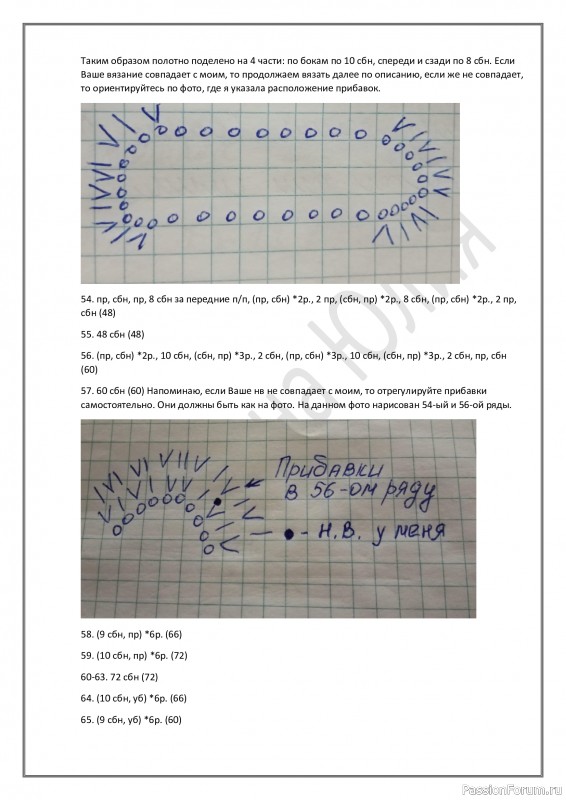 Таким образом полотно поделено на 4 части: по бокам по 10 сбн, спереди и сзади по 8 сбн. Если
Ваше вязание совпадает с моим, то продолжаем вязать далее по описанию, если же не совпадает,
то ориентируйтесь по фото, где я указала расположение прибавок.
54. пр, сбн, пр, 8 сбн за передние п/п, (пр, сбн) *2р., 2 пр, (сбн, пр) *2р., 8 сбн, (пр, сбн) *2р., 2 пр,
сбн (48)
55. 48 сбн (48)
56. (пр, сбн) *2р., 10 сбн, (сбн, пр) *3р., 2 сбн, (пр, сбн) *3р., 10 сбн, (сбн, пр) *3р., 2 сбн, пр, сбн
(60)
57. 60 сбн (60) Напоминаю, если Ваше нв не совпадает с моим, то отрегулируйте прибавки
самостоятельно. Они должны быть как на фото. На данном фото нарисован 54-ый и 56-ой ряды.
Прибавки
в 56-ом ряду
- Н.В. у меня
58. (9 сбн, пр) *6р. (66)
59. (10 сбн, пр) *6р. (72)
60-63. 72 сбн (72)
64. (10 сбн, уб) *6р. (66)
65. (9 сбн, уб) *6р. (60)
на Юлия
PassionForum.ru